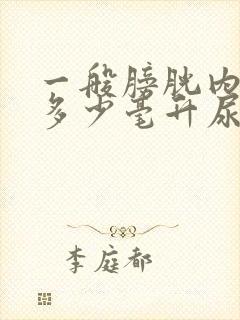 一般膀胱内
多少毫升尿
李庭都